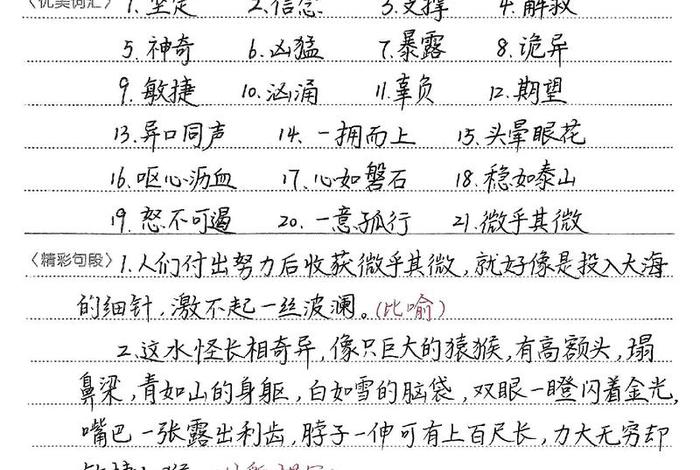 〈优美词汇〉1.坚定 2.信念 3.支撑 4.解救
5.神奇 6.凶猛 7.暴露 8.诡异
9.敏捷 10.汹涌 11.辜负 12.期望
13.异口同声 14.一拥而上 15.头晕眼花
16.呕心沥血 17.心如磐石 18.稳如泰山
19.怒不可遏 20.一意孤行 21.微乎其微
〈精彩句段〉1.人们付出努力后收获微乎其微,就好像是投入大海
的细针,激不起一丝波澜。(比喻)
2.这水怪长相奇异,像只巨大的猿猴,有高额头,塌
鼻梁,青如山的身躯,白如雪的脑袋,双眼一瞪闪着金光,
嘴巴一张露出利齿,脖子一伸可有上百尺长,力大无穷却